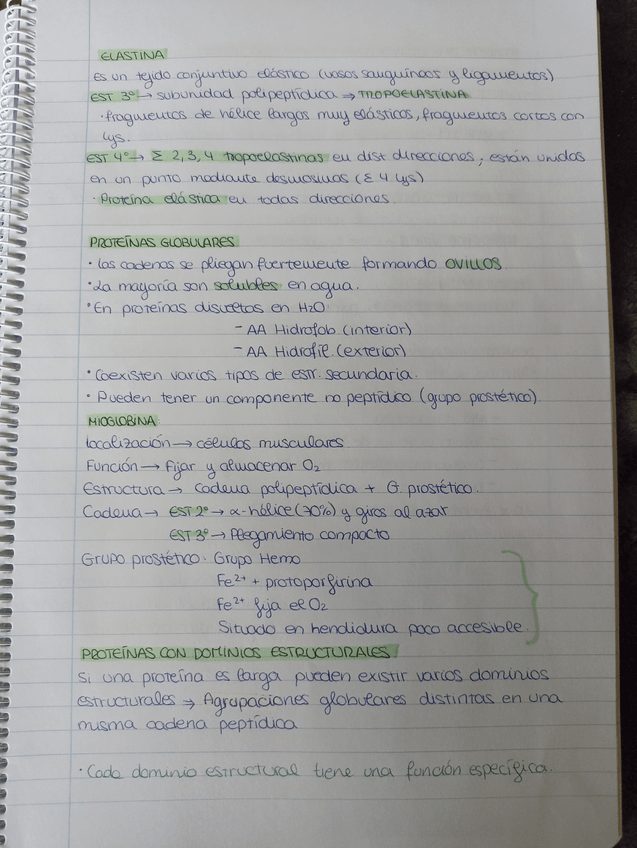 ELASTINA
es un tejido conjuntivo elástico (vasos sanguíneos y ligamentos)
EST 3º → subunidad polipeptídica → TROPOELASTINA
· fragmentos de hélice largos muy elásticos, fragmentos cortos con
Lys.
EST 4º → Σ 2, 3, 4 tropoelastinas en dist direcciones, están unidas
en un punto mediante desmosinas (Σ 4 Lys)
· Proteína elástica en todas direcciones.
PROTEÍNAS GLOBULARES
· Las cadenas se pliegan fuertemente formando OVILLOS
· La mayoría son solubles en agua.
· En proteínas disueltas en H₂O
- AA Hidrofob (interior)
- AA Hidrofil (exterior)
· Coexisten varios tipos de estr. secundaria.
· Pueden tener un componente no peptídico (grupo prostético)
MIOGLOBINA
Localización → células musculares
Función → Fijar y almacenar O₂
Estructura → Cadena polipeptídica + G. prostético.
Cadena → EST 2º → α-hélice (70%) y giros al azar
EST 3º → Plegamiento compacto
Grupo prostético · Grupo Hemo
Fe²⁺ + protoporfirina
Fe²⁺ fija el O₂
Situado en hendidura poco accesible.
PROTEÍNAS CON DOMINIOS ESTRUCTURALES.
Si una proteína es larga pueden existir varios dominios
estructurales → Agrupaciones globulares distintas en una
misma cadena peptídica
· Cada dominio estructural tiene una función específica.